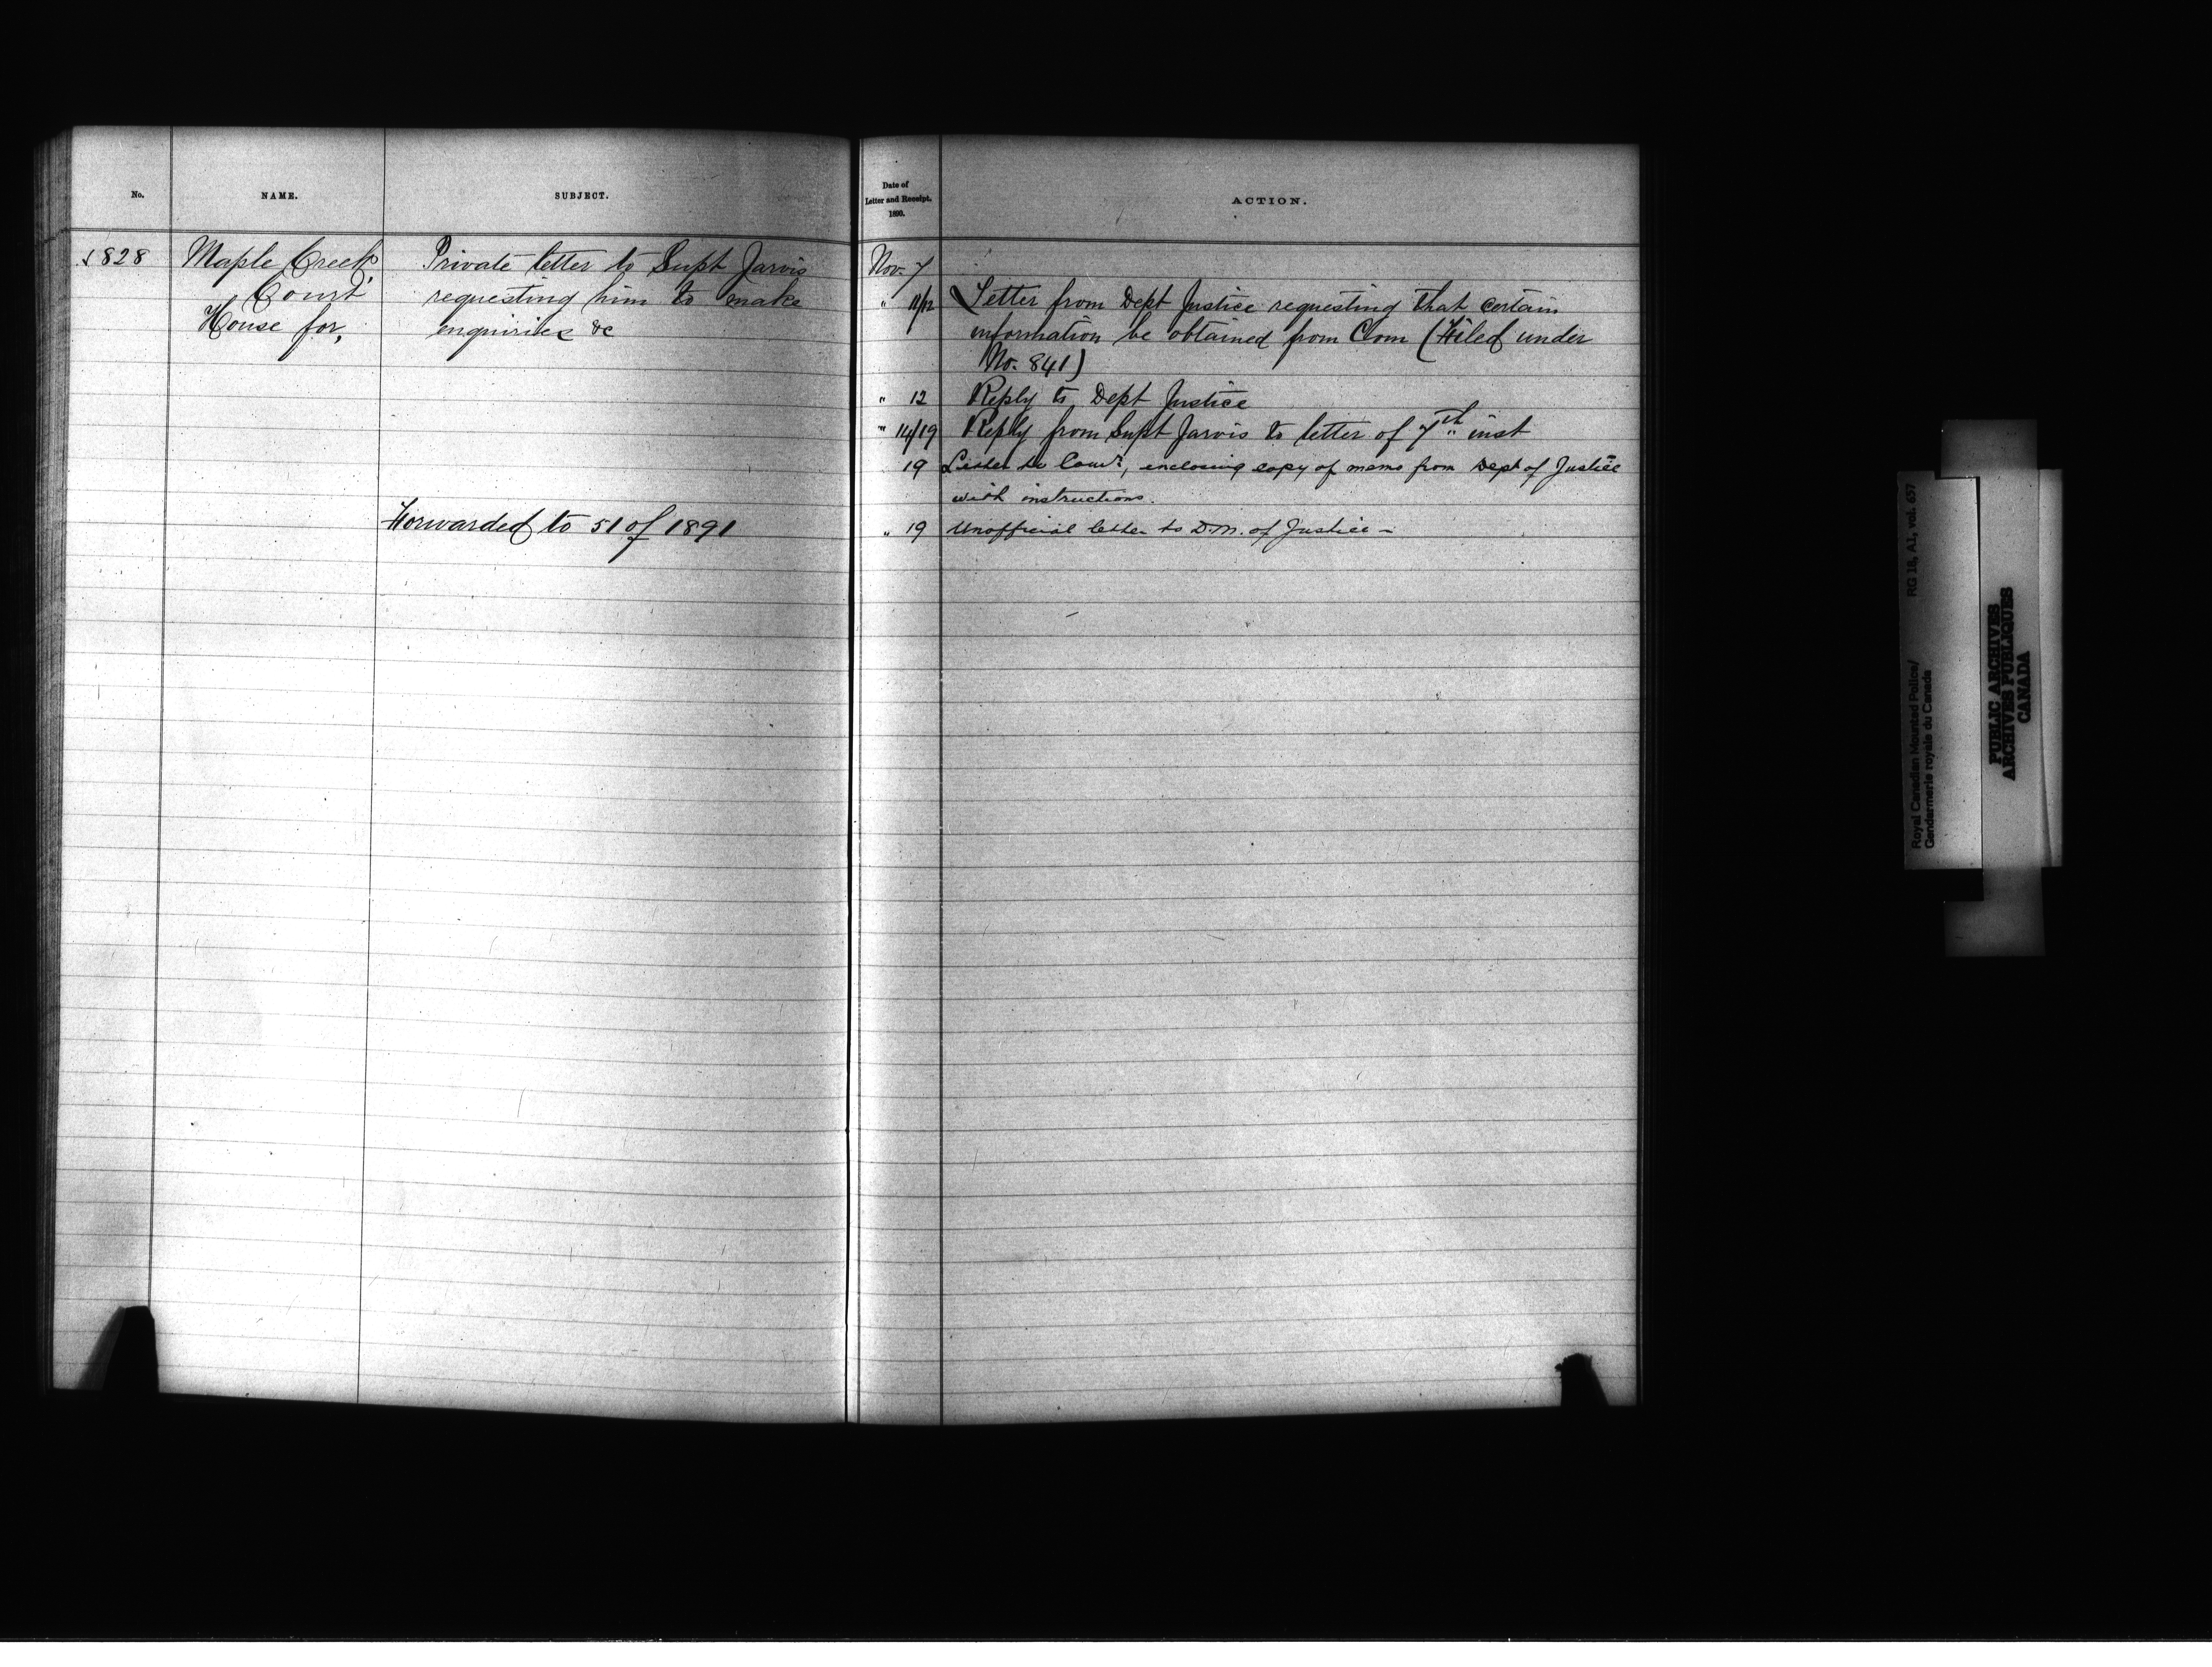 No.
NAME.
SUBJECT.
1828
Maple Creek,
Court
House for,
Private letter to Supt Jarvis
requesting him to make
enquiries &c
Forwarded to 51 of 1891
Date of
Letter and Receipt.
1890.
ACTION.
Nov. 7
" 11/12 Letter from Dept Justice requesting that certain
information be obtained from Com (Filed under
No. 841)
" 12 Reply to Dept Justice
" 14/19 Reply from Supt Jarvis to letter of 7th inst
19 Letter to Comr, enclosing copy of memo from Dept of Justice
with instructions.
" 19 Unofficial letter to D.M. of Justice –
Royal Canadian Mounted Police/ RG 18, A1, vol. 657
Gendarmerie royale du Canada
PUBLIC ARCHIVES
ARCHIVES PUBLIQUES
CANADA